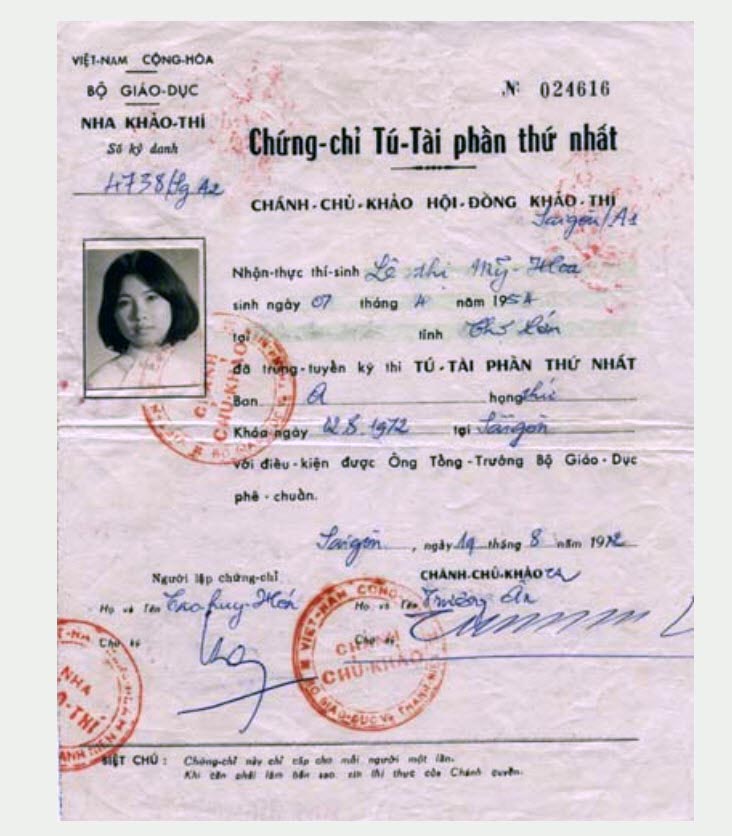 VIỆT-NAM CỘNG-HÒA
BỘ GIÁO-DỤC
NHA KHẢO-THÍ
Số ký danh
4738/Sg A2
№ 024616
Chứng-chỉ Tú-Tài phần thứ nhất
CHÁNH-CHỦ-KHẢO HỘI-ĐỒNG KHẢO-THÍ
Saigon/A1
Nhận-thực thí-sinh Lê thị Mỹ-Hoa
sinh ngày 07 tháng 4 năm 1954
tại tỉnh Chợ Lớn
đã trúng-tuyển kỳ thi TÚ-TÀI PHẦN THỨ NHẤT
Ban A hạng thứ
Khóa ngày 02.8.1972 tại Saigon
với điều-kiện được Ông Tổng-Trưởng Bộ Giáo-Dục
phê-chuẩn.
Saigon, ngày 19 tháng 8 năm 1972
Người lập chứng-chỉ
Họ và Tên
Chữ ký
CHÁNH-CHỦ-KHẢO
Họ và Tên Trương Ân
Chữ ký
CHÁNH
CHỦ-KHẢO
VIỆT-NAM CỘNG
CHÁNH
CHỦ-KHẢO
BỘ GIÁO-DỤC VÀ THANH-NIÊN
NHA
O-THÍ
BIỆT CHÚ : Chứng-chỉ này chỉ cấp cho mỗi người một lần.
Khi cần phải làm bản sao, xin thị thực của Chánh quyền.